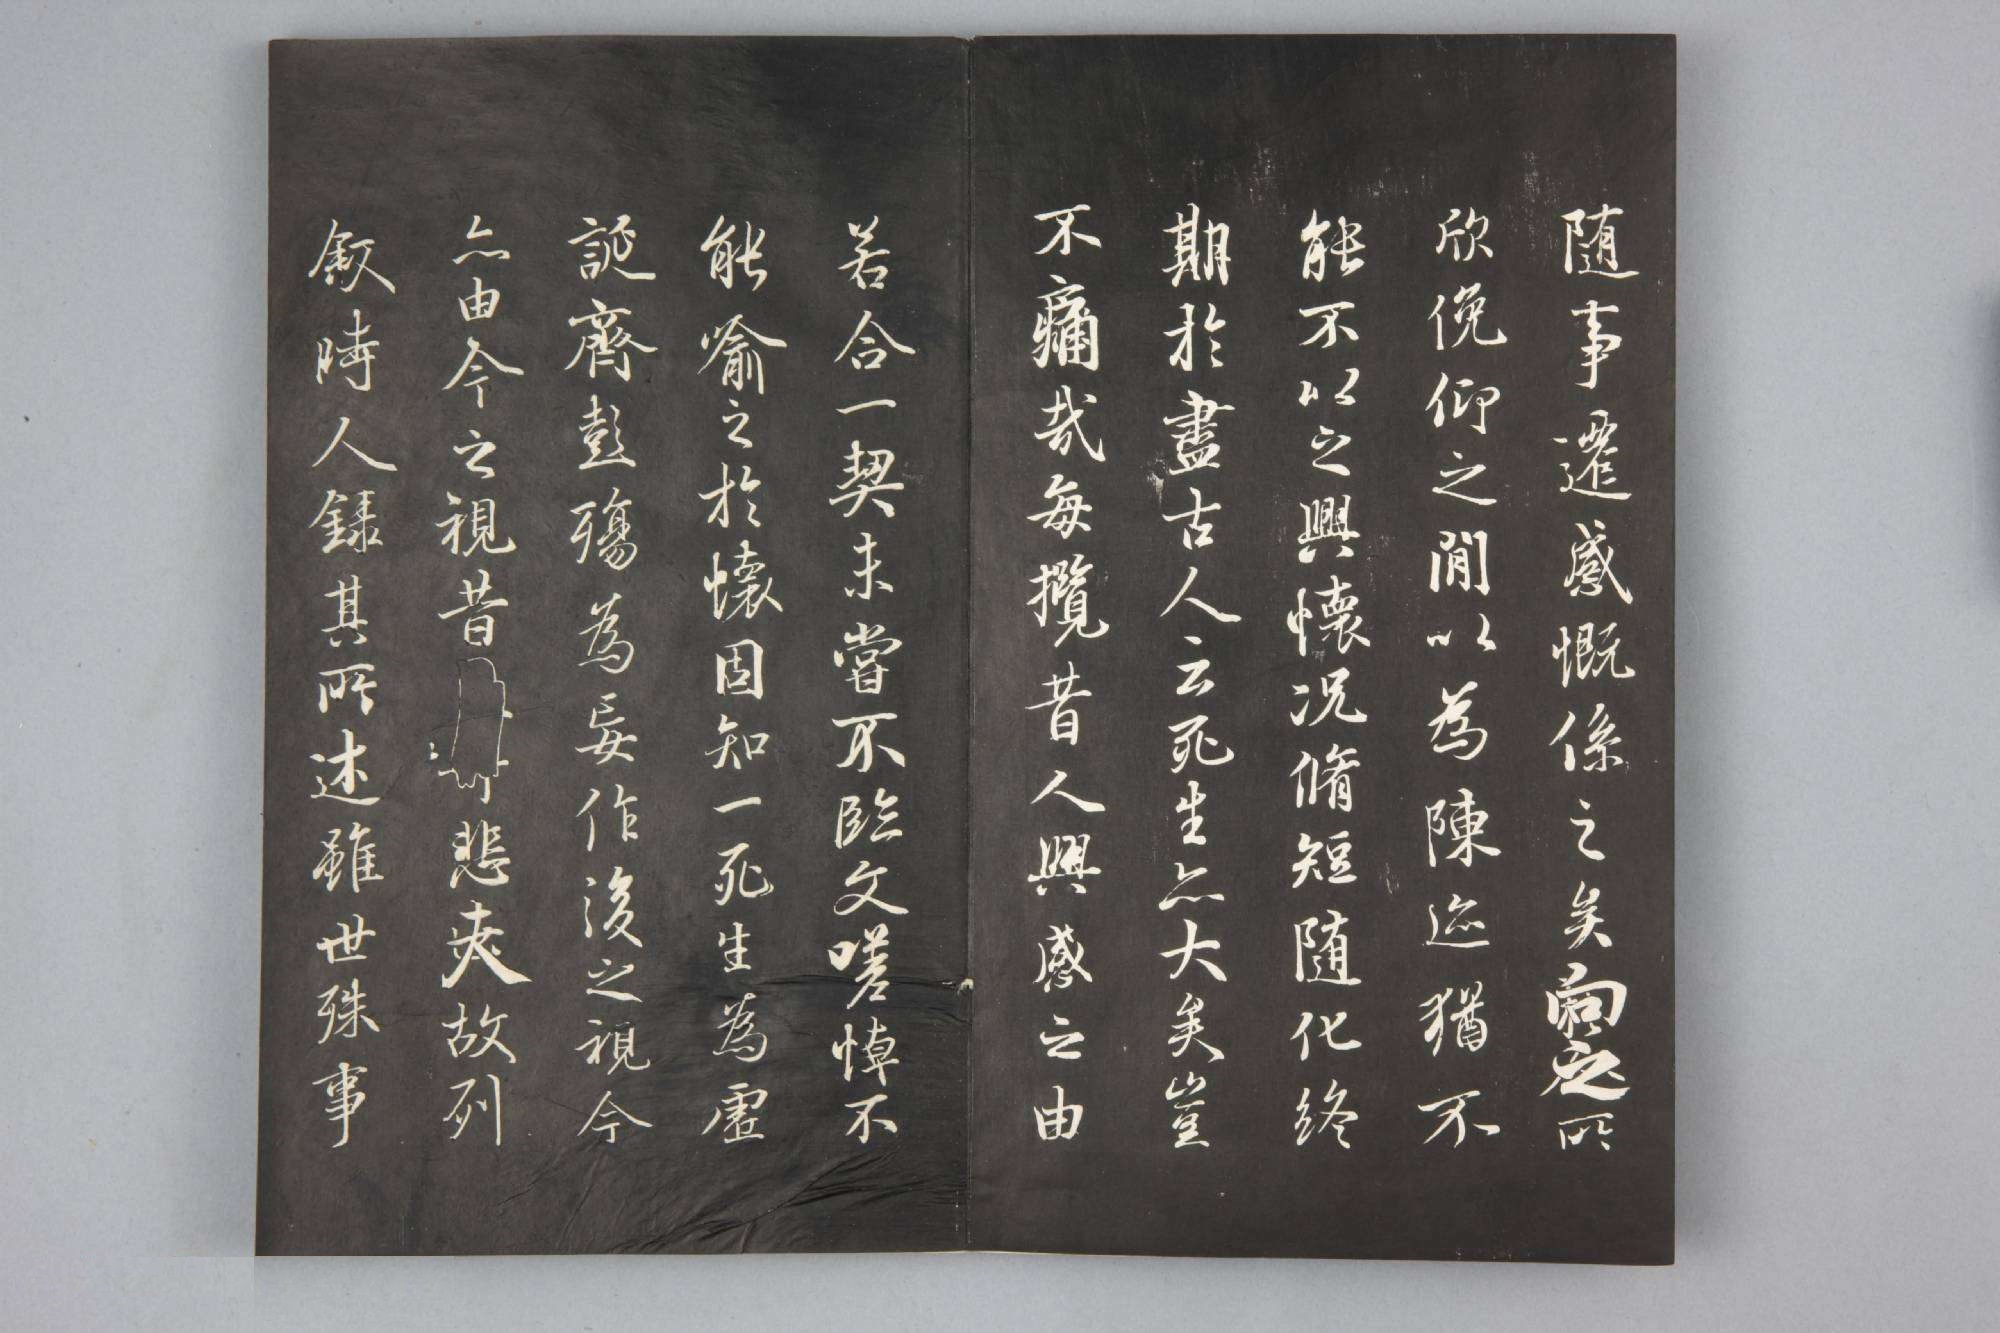 随事遷感慨係之矣向之所
欣俛仰之間以為陳迹猶不
能不以之興懷況脩短随化終
期於盡古人云死生亦大矣豈
不痛哉每攬昔人興感之由
若合一契未嘗不臨文嗟悼不
能喻之於懷固知一死生為虛
誕齊彭殤為妄作後之視今
亦由今之視昔悲夫故列
敘時人錄其所述雖世殊事